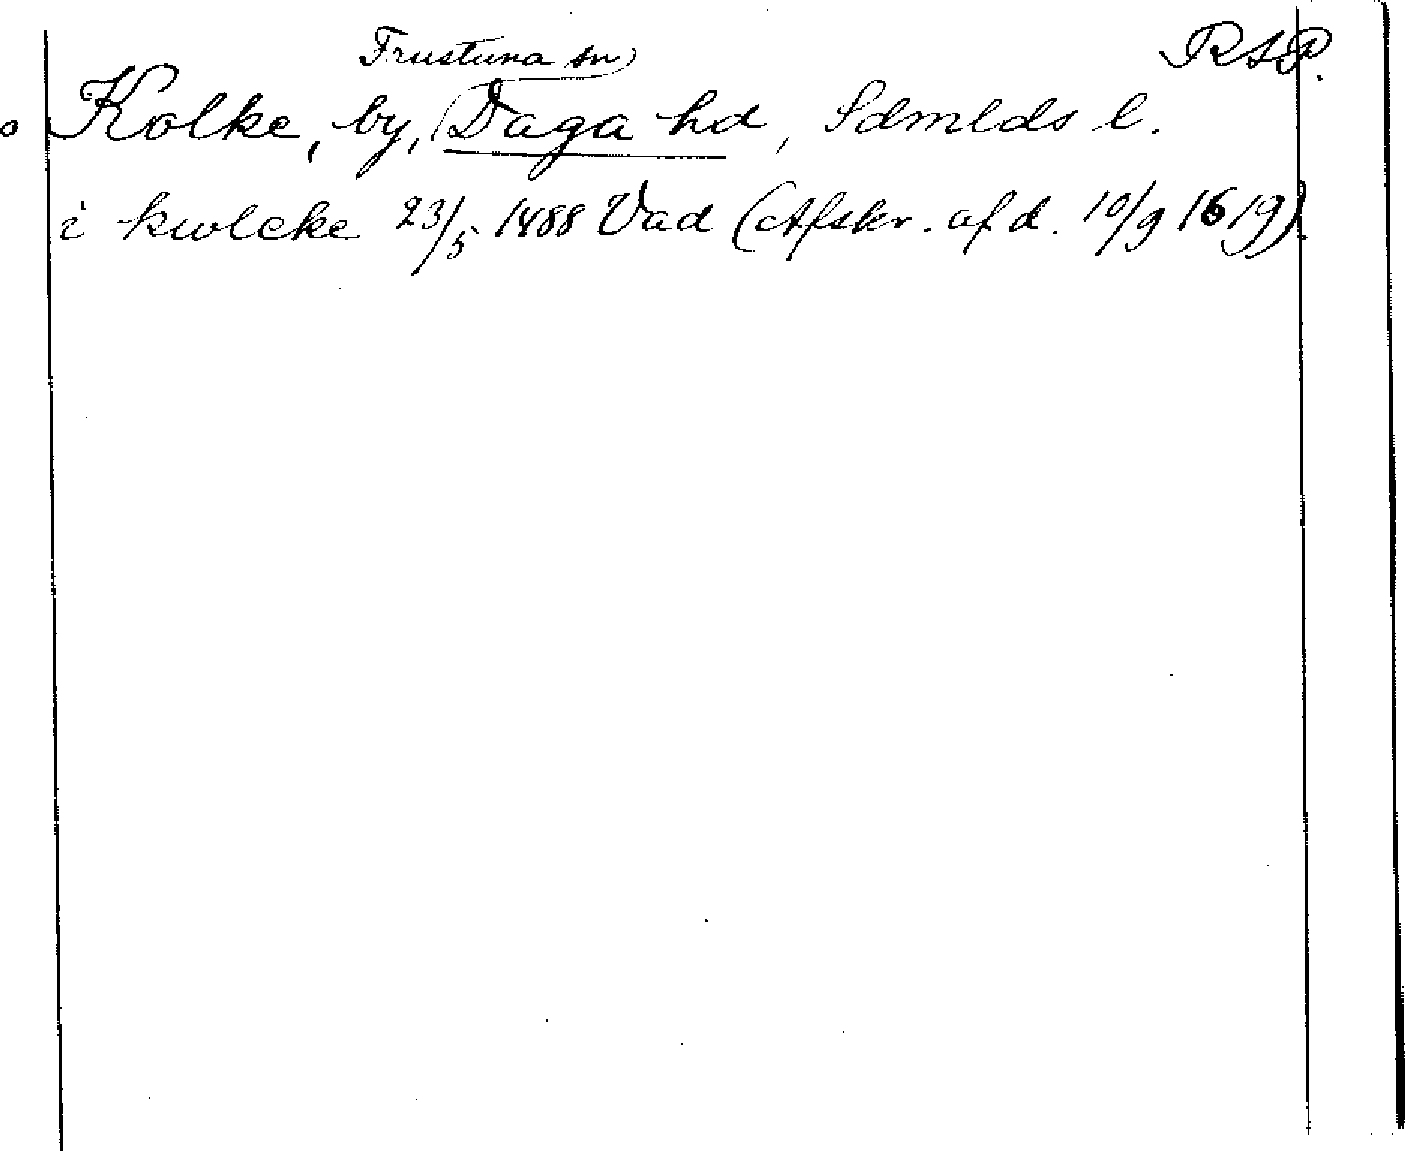 Frustuna sn
RAP.
Kolke, by, Daga hd, Sdmlds l.
i kwlcke 23/5 1488 Vad (Afskr. af d. 10/9 1619).